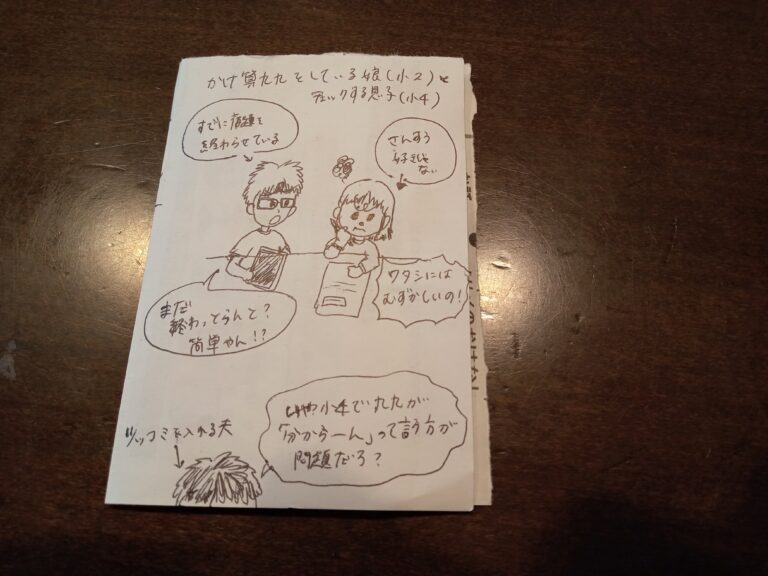 かけ算九九をしている娘(小2)と
チェックする息子(小4)
すでに宿題を
終わらせている
さんすう
好きじゃ
ない
まだ
終わっとらんと?
簡単やん!?
ワタシには
むずかしいの!
いや小4で九九が
「分からーん」って言う方が
問題だろ?
ツッコミを入れる夫